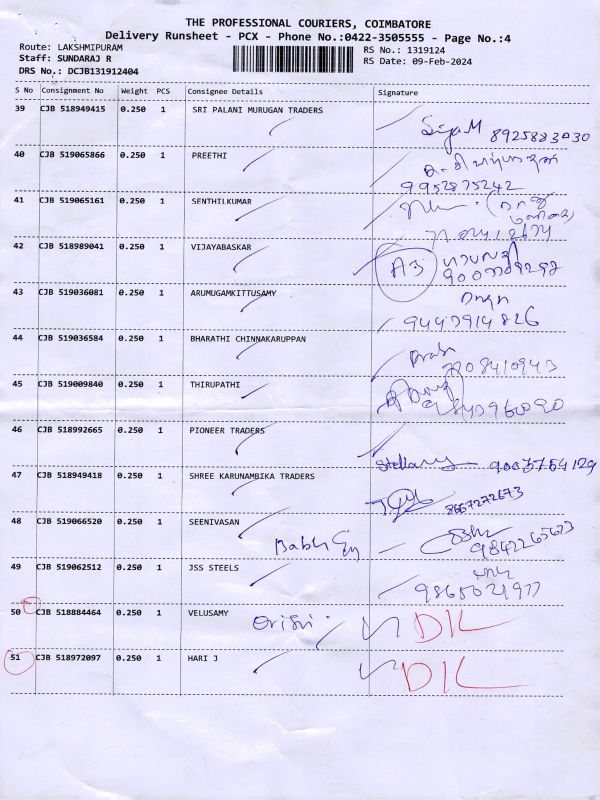 THE PROFESSIONAL COURIERS, COIMBATORE
Delivery Runsheet - PCX - Phone No.:0422-3505555 - Page No.:4
Route: LAKSHMIPURAM RS No.: 1319124
Staff: SUNDARAJ R RS Date: 09-Feb-2024
DRS No.: DCJB131912404
S No Consignment No Weight PCS Consignee Details Signature
39 CJB 518949415 0.250 1 SRI PALANI MURUGAN TRADERS
8925883030
40 CJB 519065866 0.250 1 PREETHI
9952875242
41 CJB 519065161 0.250 1 SENTHILKUMAR
42 CJB 518989041 0.250 1 VIJAYABASKAR
A3
43 CJB 519036081 0.250 1 ARUMUGAMKITTUSAMY
9443914826
44 CJB 519036584 0.250 1 BHARATHI CHINNAKARUPPAN
45 CJB 519009840 0.250 1 THIRUPATHI
46 CJB 518992665 1 0.250 1 PIONEER TRADERS
47 CJB 518949418 0.250 1 SHREE KARUNAMBIKA TRADERS
8667272673
48 CJB 519066520 0.250 1 SEENIVASAN
9842265673
49 CJB 519062512 0.250 1 JSS STEELS
50 CJB 518884464 0.250 1 VELUSAMY
DIL
51 CJB 518972097 0.250 1 HARI J
DIL